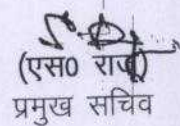 (एस0 राजू)
प्रमुख सचिव